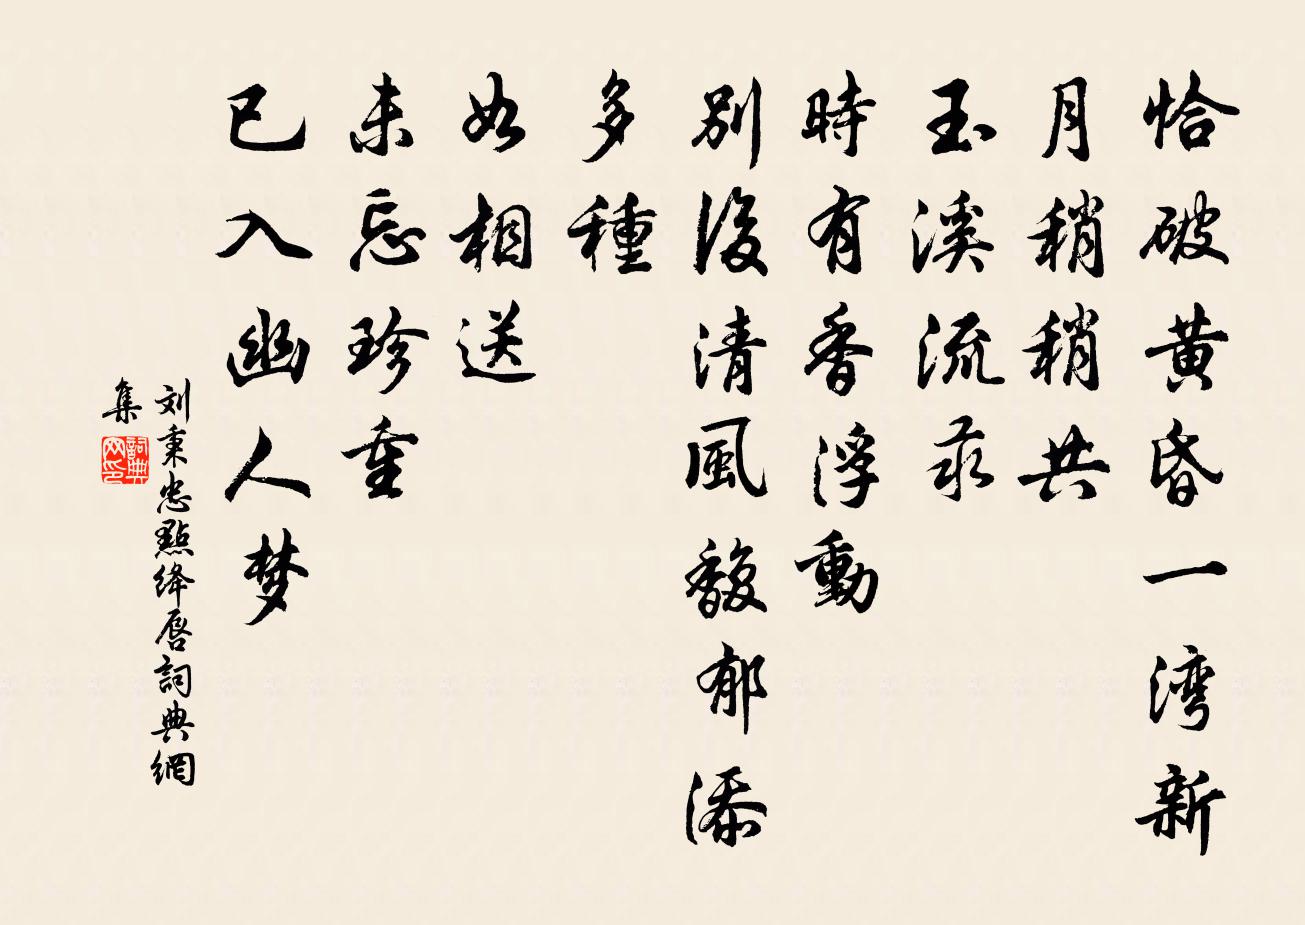 恰破黄昏一湾新
月稍稍共
玉溪流汞
時有香浮動
别後清風馥郁添
多種
如相送
未忘珍重
已入幽人梦
刘秉忠點绛唇詞典網
集
詞典
网印